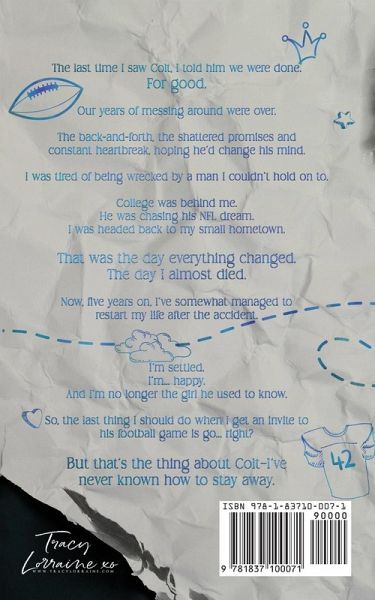 The last time I saw Colt, I told him we were done.
For good.
Our years of messing around were over.
The back-and-forth, the shattered promises and
constant heartbreak, hoping he'd change his mind.
I was tired of being wrecked by a man I couldn't hold on to.
College was behind me.
He was chasing his NFL dream.
I was headed back to my small hometown.
That was the day everything changed.
The day I almost died.
Now, five years on, I've somewhat managed to
restart my life after the accident.
I'm settled.
I'm... happy.
And I'm no longer the girl he used to know.
So, the last thing I should do when I get an invite to
his football game is go... right?
But that's the thing about Colt–I've
never known how to stay away.
42
Tracy
Lorraine xo
WWW.TRACYLORRAINE.COM
ISBN 978-1-83710-007-1
90000
9 781837 100071